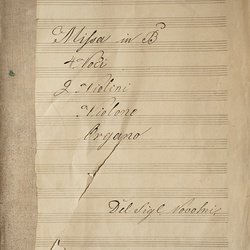 Missa in B
4 Voci
2 Violini
Violone
Organo
Del Sigl Novotni